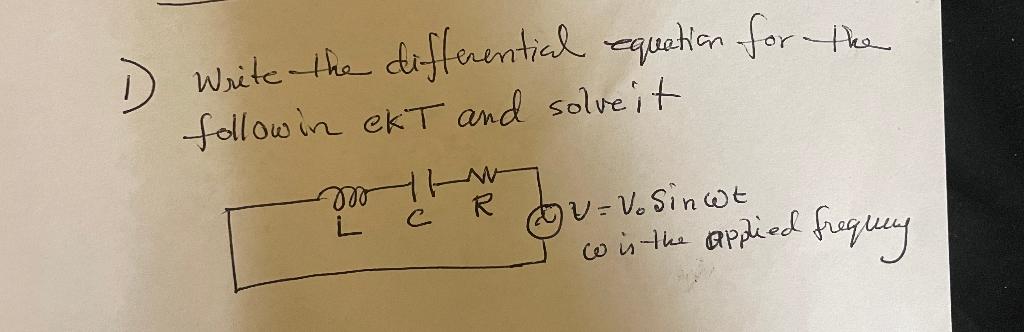 1) Write the differential equation for the
followin ckT and solve it
L C R
V = V₀ Sin ωt
ω is the applied frequency